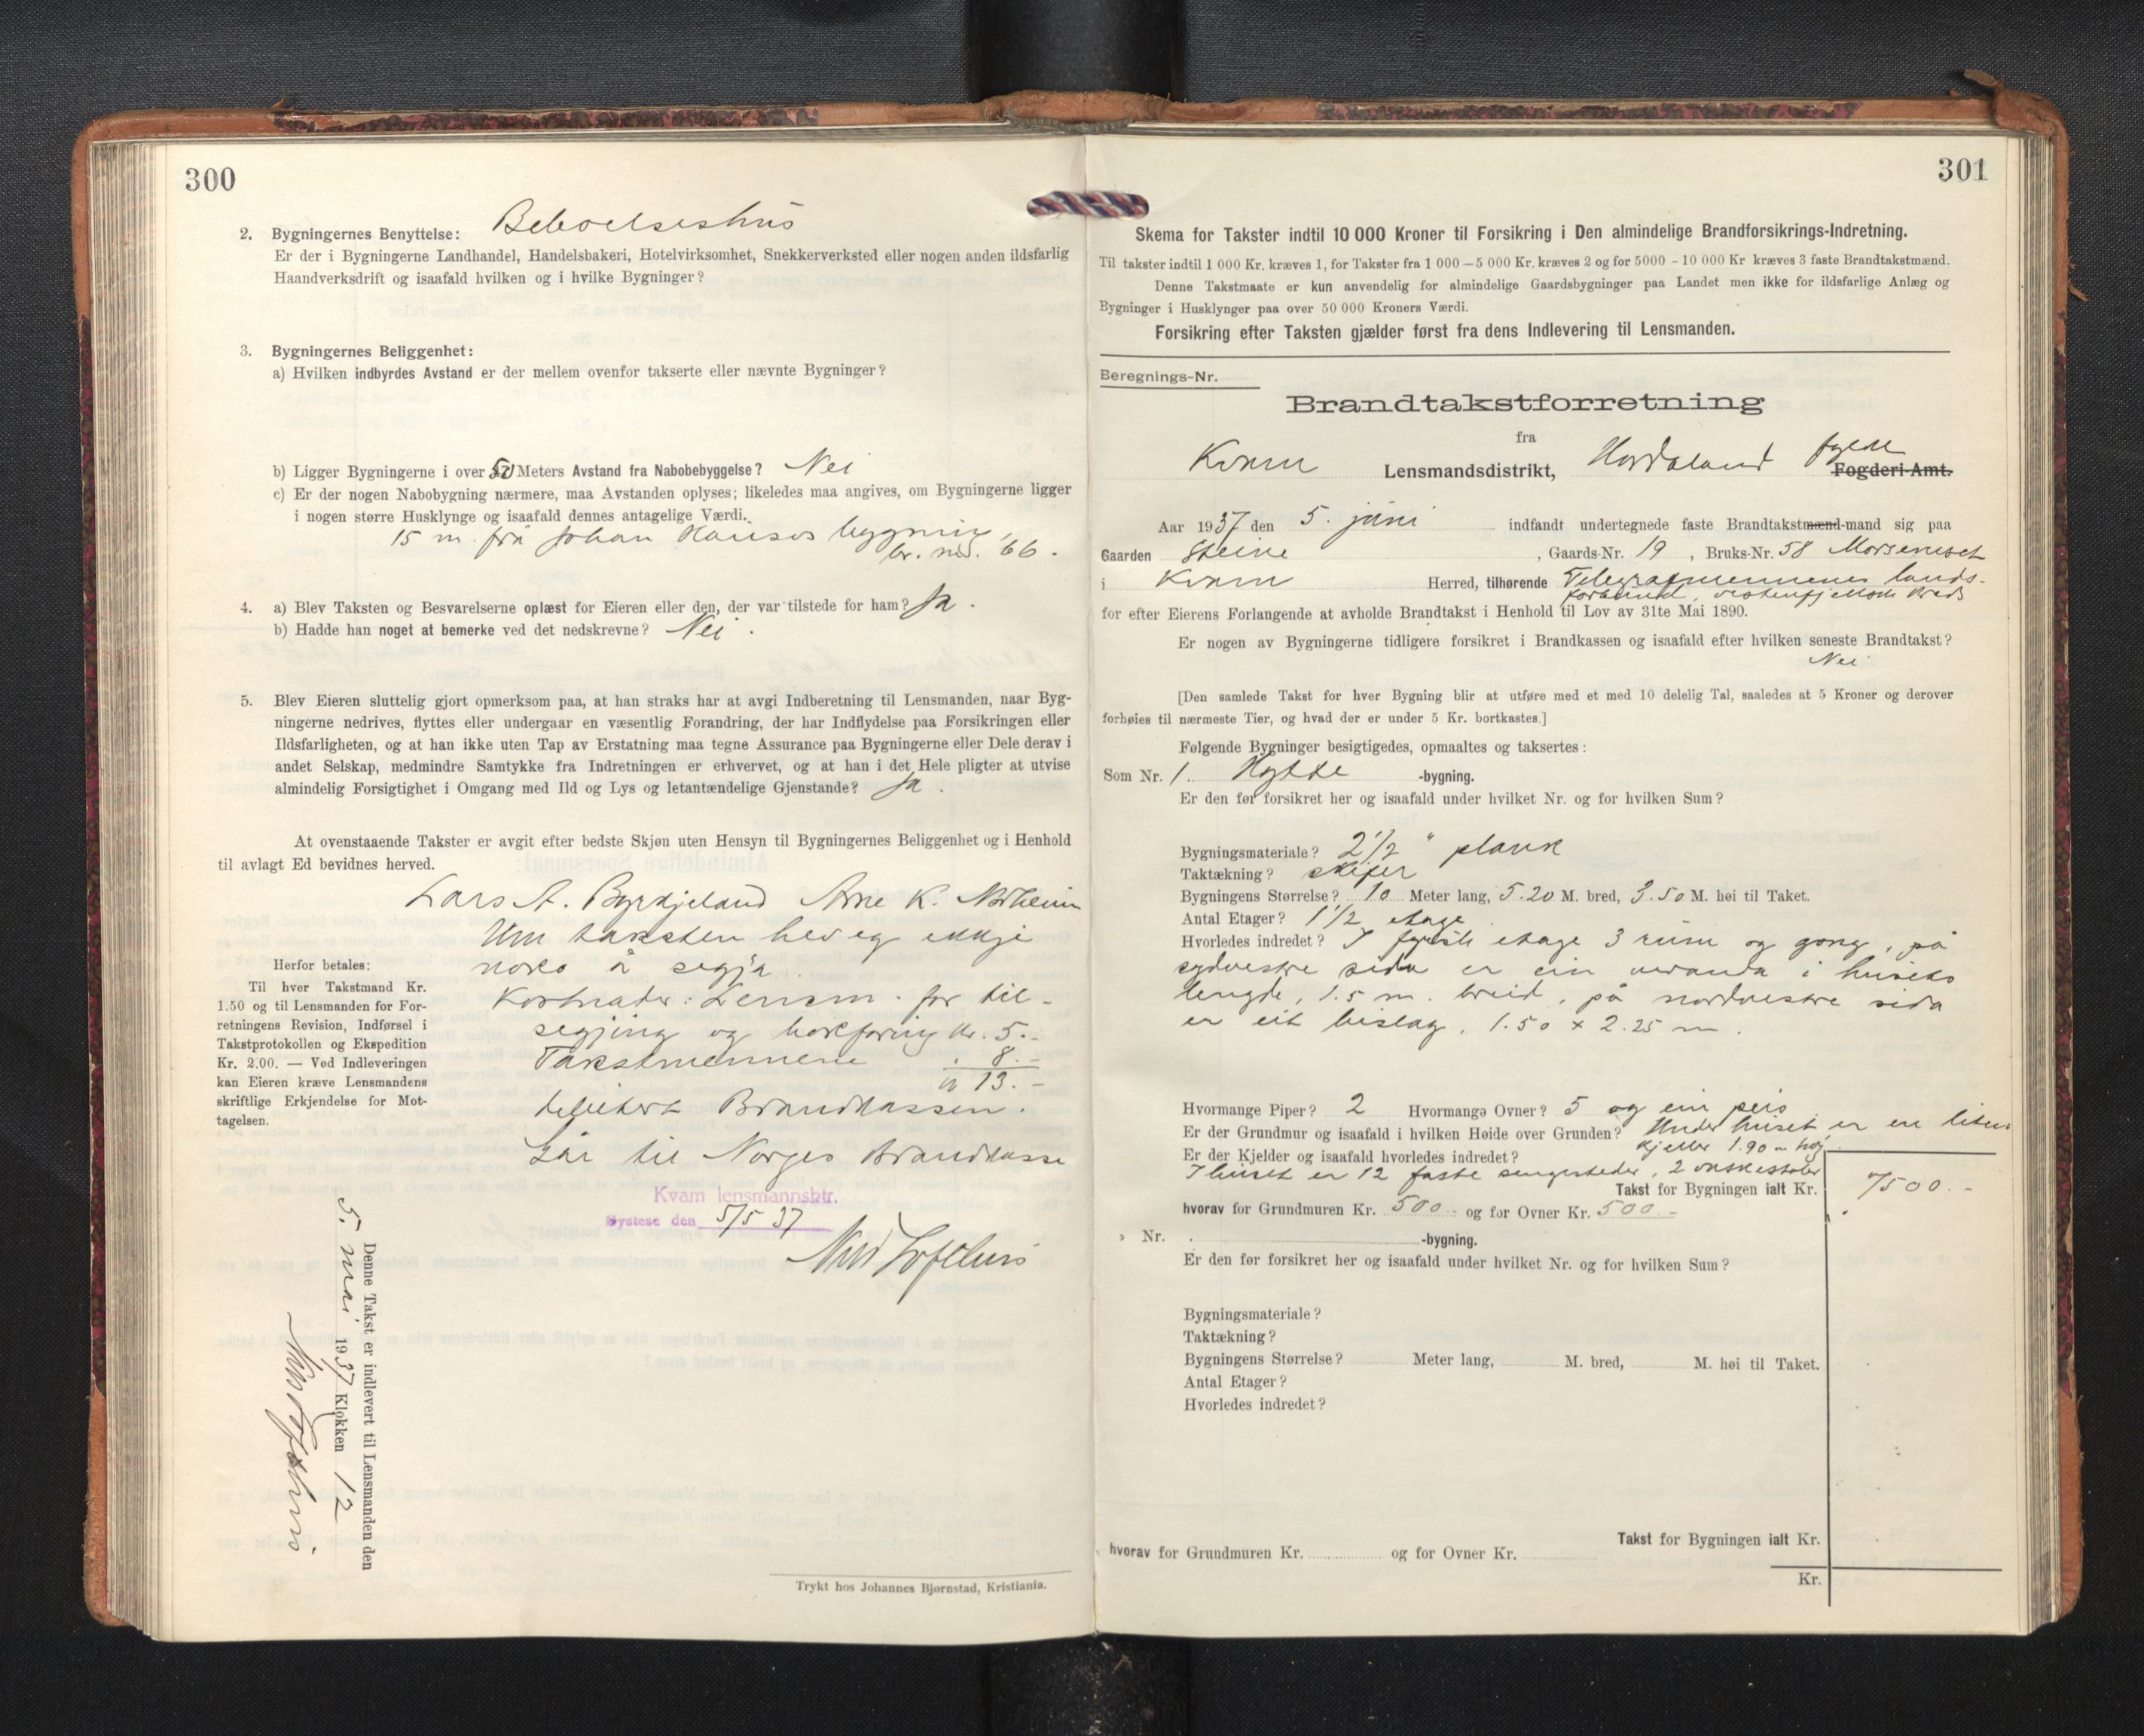 300
2. Bygningernes Benyttelse: Beboelseshus
Er der i Bygningerne Landhandel, Handelsbakeri, Hotelvirksomhet, Snekkerverksted eller nogen anden ildsfarlig
Haandverksdrift og isaafald hvilken og i hvilke Bygninger?
3. Bygningernes Beliggenhet:
a) Hvilken indbyrdes Avstand er der mellem ovenfor takserte eller nævnte Bygninger?
b) Ligger Bygningerne i over 50 Meters Avstand fra Nabobebyggelse? Nei
c) Er der nogen Nabobygning nærmere, maa Avstanden oplyses; likeledes maa angives, om Bygningerne ligger
i nogen større Husklynge og isaafald dennes antagelige Værdi.
15 m. frå Johan bygning,
br. nr. 66.
4. a) Blev Taksten og Besvarelserne oplæst for Eieren eller den, der var tilstede for ham? Ja.
b) Hadde han noget at bemerke ved det nedskrevne? Nei.
5. Blev Eieren sluttelig gjort opmerksom paa, at han straks har at avgi Indberetning til Lensmanden, naar Byg-
ningerne nedrives, flyttes eller undergaar en væsentlig Forandring, der har Indflydelse paa Forsikringen eller
Ildsfarligheten, og at han ikke uten Tap av Erstatning maa tegne Assurance paa Bygningerne eller Dele derav i
andet Selskap, medmindre Samtykke fra Indretningen er erhvervet, og at han i det Hele pligter at utvise
almindelig Forsigtighet i Omgang med Ild og Lys og letantændelige Gjenstande? Ja.
At ovenstaaende Takster er avgit efter bedste Skjøn uten Hensyn til Bygningernes Beliggenhet og i Henhold
til avlagt Ed bevidnes herved.
Lars A. Byrkjeland Arne K. Norheim
Um taksten hev eg ikkje
noko å segja.
Kostnader: Lensm. for til-
segjing og bokføring kr. 5.-
Takstmennene " 8.-
kr 13.-
debitert Brandkassen.
Går til Norges Brandkasse
Kvam lensmannsktr.
Øystese den 5/5 37
Nils Lofthus
Herfor betales:
Til hver Takstmand Kr.
1.50 og til Lensmanden for For-
retningens Revision, Indførsel i
Takstprotokollen og Ekspedition
Kr. 2.00. — Ved Indleveringen
kan Eieren kræve Lensmandens
skriftlige Erkjendelse for Mot-
tagelsen.
Denne Takst er indlevert til Lensmanden den
5. mai 1937 Klokken 12
Nils Lofthus
Trykt hos Johannes Bjørnstad, Kristiania.
301
Skema for Takster indtil 10 000 Kroner til Forsikring i Den almindelige Brandforsikrings-Indretning.
Til takster indtil 1 000 Kr. kræves 1, for Takster fra 1 000 — 5 000 Kr. kræves 2 og for 5000 - 10 000 Kr kræves 3 faste Brandtakstmænd.
Denne Takstmaate er kun anvendelig for almindelige Gaardsbygninger paa Landet men ikke for ildsfarlige Anlæg og
Bygninger i Husklynger paa over 50 000 Kroners Værdi.
Forsikring efter Taksten gjælder først fra dens Indlevering til Lensmanden.
Beregnings-Nr.
Brandtakstforretning
fra
Kvam Lensmandsdistrikt, Hordaland fylke Fogderi Amt.
Aar 1937 den 5. juni indfandt undertegnede faste Brandtakstmænd-mand sig paa
Gaarden Steine, Gaards-Nr. 19, Bruks-Nr. 58 Morseneset
i Kvam Herred, tilhørende Telegrafmennenes lands-
forbund, vestenfjellske kreds
for efter Eierens Forlangende at avholde Brandtakst i Henhold til Lov av 31te Mai 1890.
Er nogen av Bygningerne tidligere forsikret i Brandkassen og isaafald efter hvilken seneste Brandtakst?
Nei
[Den samlede Takst for hver Bygning blir at utføre med et med 10 delelig Tal, saaledes at 5 Kroner og derover
forhøies til nærmeste Tier, og hvad der er under 5 Kr. bortkastes.]
Følgende Bygninger besigtigedes, opmaaltes og taksertes:
Som Nr. 1. Hytte -bygning.
Er den før forsikret her og isaafald under hvilket Nr. og for hvilken Sum?
Bygningsmateriale? 2 1/2 " plank
Taktækning? skifer
Bygningens Størrelse? 10 Meter lang, 5.20 M. bred, 3.50 M. høi til Taket.
Antal Etager? 1 1/2 etage
Hvorledes indredet? I fyrste etage 3 rum og gong, på
sydvestre sida er ein veranda i husets
lengde, 1.5 m. breid, på nordvestre sida
er eit bislag, 1.50 x 2.25 m.
Hvormange Piper? 2 Hvormange Ovner? 5 og ein peis
Er der Grundmur og isaafald i hvilken Høide over Grunden? Under huset er en liten
Er der Kjelder og isaafald hvorledes indredet? kjeller 1.90 m høj
I huset er 12 faste sengesteder, 2
Takst for Bygningen ialt Kr. 7500.-
hvorav for Grundmuren Kr. 500.- og for Ovner Kr. 500.-
" Nr. -bygning.
Er den før forsikret her og isaafald under hvilket Nr. og for hvilken Sum?
Bygningsmateriale?
Taktækning?
Bygningens Størrelse? Meter lang, M. bred, M. høi til Taket.
Antal Etager?
Hvorledes indredet?
Takst for Bygningen ialt Kr.
hvorav for Grundmuren Kr. og for Ovner Kr.
Kr.